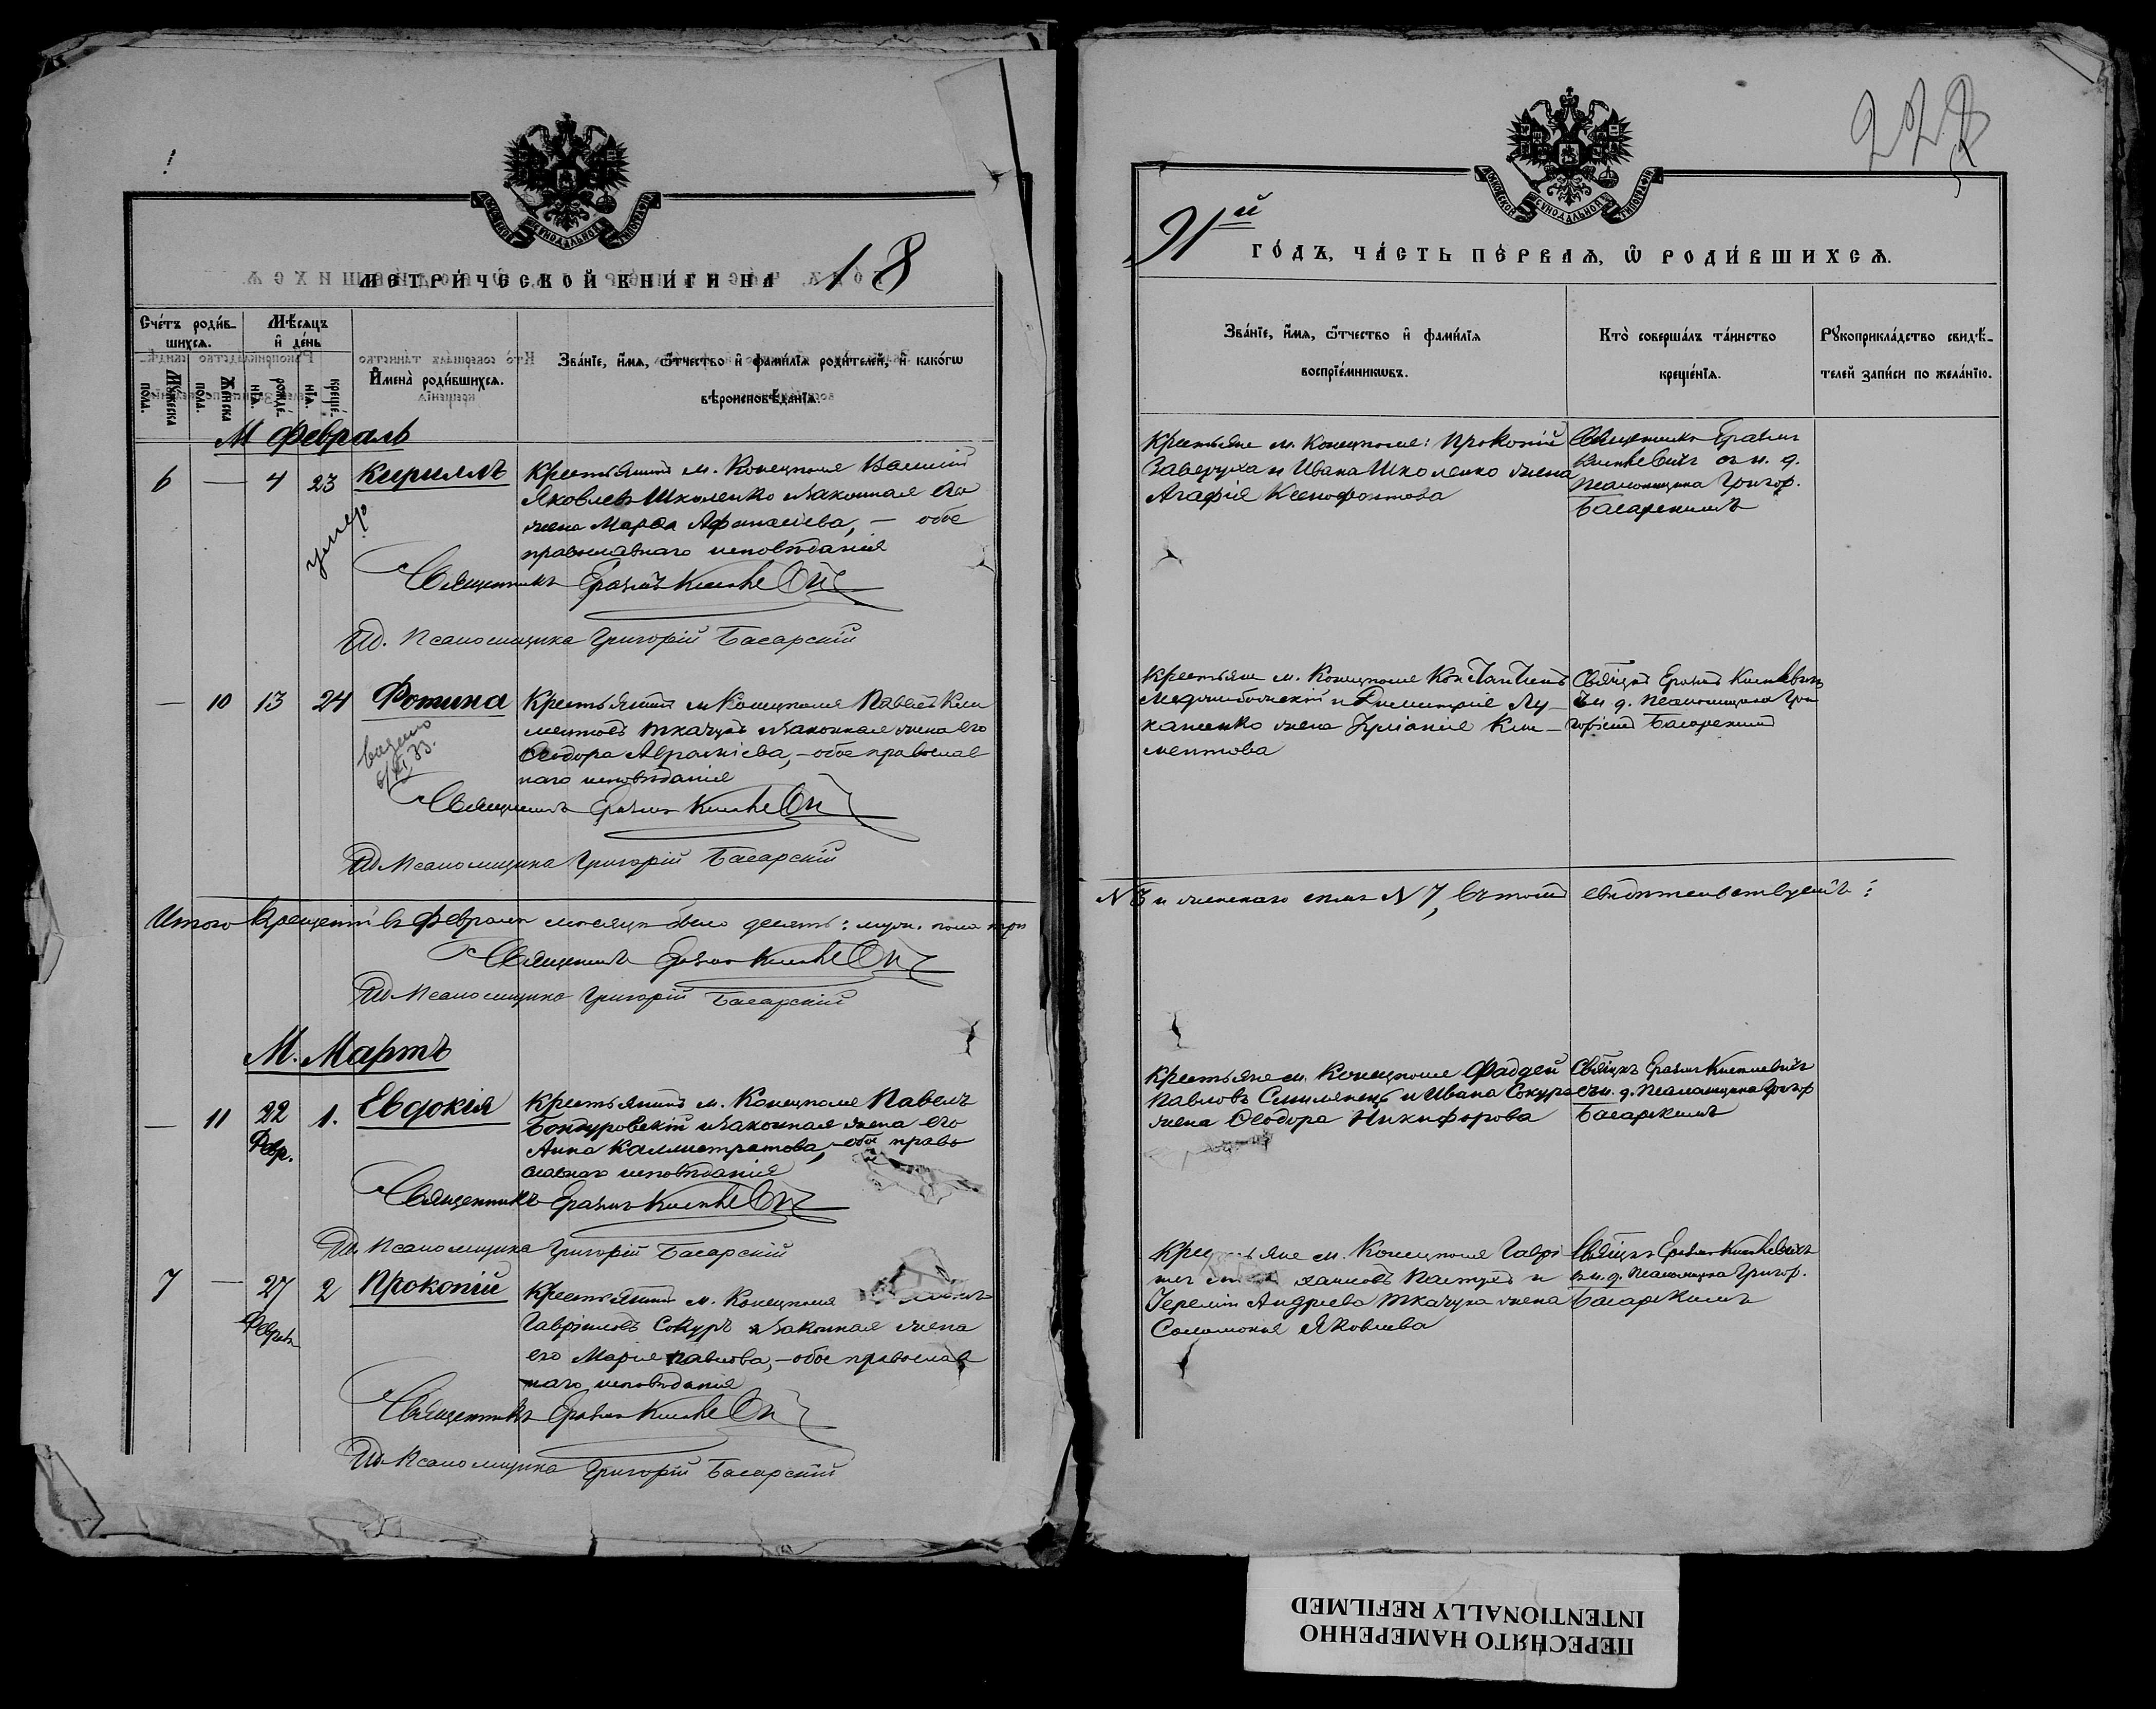 228
МОСКОВСКОЙ СѴНОДАЛЬНОЙ ТИПОГРАФІИ
МЕТРИ́ЧЕСКОЙ КНИ́ГИ НА 18
Сче́тъ роди́в-
шихсѧ.
Мѣ́сѧцъ
и҆ де́нь
Мꙋ́жеска
пола.
Же́нска
пола.
рожде́-
нїѧ.
креще́-
нїѧ.
И҆мена̀ роди́вшихсѧ.
Зва́нїе, и҆́мѧ, ѻ҆́тчество и҆ фами́лїѧ роди́телей, и҆ како́гѡ
вѣроисповѣ́данїѧ.
М Февраль
6 — 4 23 Кириллъ
умер
Крестьянинъ м. Конецполя Василій
Яковлевъ Школенко и законная его
жена Марѳа Афанасіева, — обое
православнаго исповѣданія
Священникъ Еразмъ
И. д. Псаломщика Григорій Басарскій
— 10 13 24 Фотина
Крестьянинъ м Конецполя Павелъ Кли
ментовъ Ткачукъ и законная жена его
Ѳеодора Авраміева, — обое православ
наго исповѣданія
Священникъ Еразмъ
И. д. Псаломщика Григорій Басарскій
Итого крещеній въ Февралѣ мѣсяцѣ было десять: муж. пола три
Священникъ Еразмъ
И. д. Псаломщика Григорій Басарскій
М. Мартъ
— 11 22 1. Евдокія
Февр.
Крестьянинъ м. Конецполя Павелъ
Бондуровскій и законная жена его
Анна Каллистратова, — обое право
славнаго исповѣданія
Священникъ Еразмъ
И. д. Псаломщика Григорій Басарскій
7 — 27 2 Прокопій
Февраля
Крестьянинъ м. Конецполя
Гавріиловъ Сокуръ и законная жена
его Марія Павлова, — обое православ
наго исповѣданія
Священникъ Еразмъ
И. д. Псаломщика Григорій Басарскій
МОСКОВСКОЙ СѴНОДАЛЬНОЙ ТИПОГРАФІИ
91й ГО́ДЪ, ЧА́СТЬ ПЕ́РВАѦ, Ѽ РОДИ́ВШИХСѦ.
Зва́нїе, и҆́мѧ, ѻ҆́тчество и҆ фами́лїѧ
воспрїе́мникѡвъ.
Кто̀ соверша́лъ та́инство
креще́нїѧ.
Рꙋкоприкла́дство свидѣ́-
телей за́писи по жела́нїю.
Крестьяне м. Конецполя: Прокопій
Заверуха и Ивана Школенко жена
Агафія Ксенофонтова
Священникъ Еразмъ
съ и. д.
Псаломщика Григор.
Басарскимъ
Крестьяне м. Конецполя Константинъ
Меджибожскій и Димитрія Лу-
каненко жена Іуліанія Кли-
ментова
Свящнкъ Еразмъ
съ и д. Псаломщика Гри
горіемъ Басарскимъ
№ 3 и женскаго пола № 7, въ томъ свидѣтельствуемъ:
Крестьяне м. Конецполя Фаддей
Павловъ Смилянецъ и Ивана Сокура
жена Ѳеодора Никифорова
Свящнкъ Еразмъ
съ и. д. Псаломщика Григор
Басарскимъ
Крестьяне м. Конецполя Гаврі
илъ Пастухъ и
Іереміи Андреева Ткачука жена
Соломонія Яковлева
Свящнкъ Еразмъ
съ и. д. Псаломщика Григор.
Басарскимъ
ПЕРЕСНЯТО НАМЕРЕННО
INTENTIONALLY REFILMED